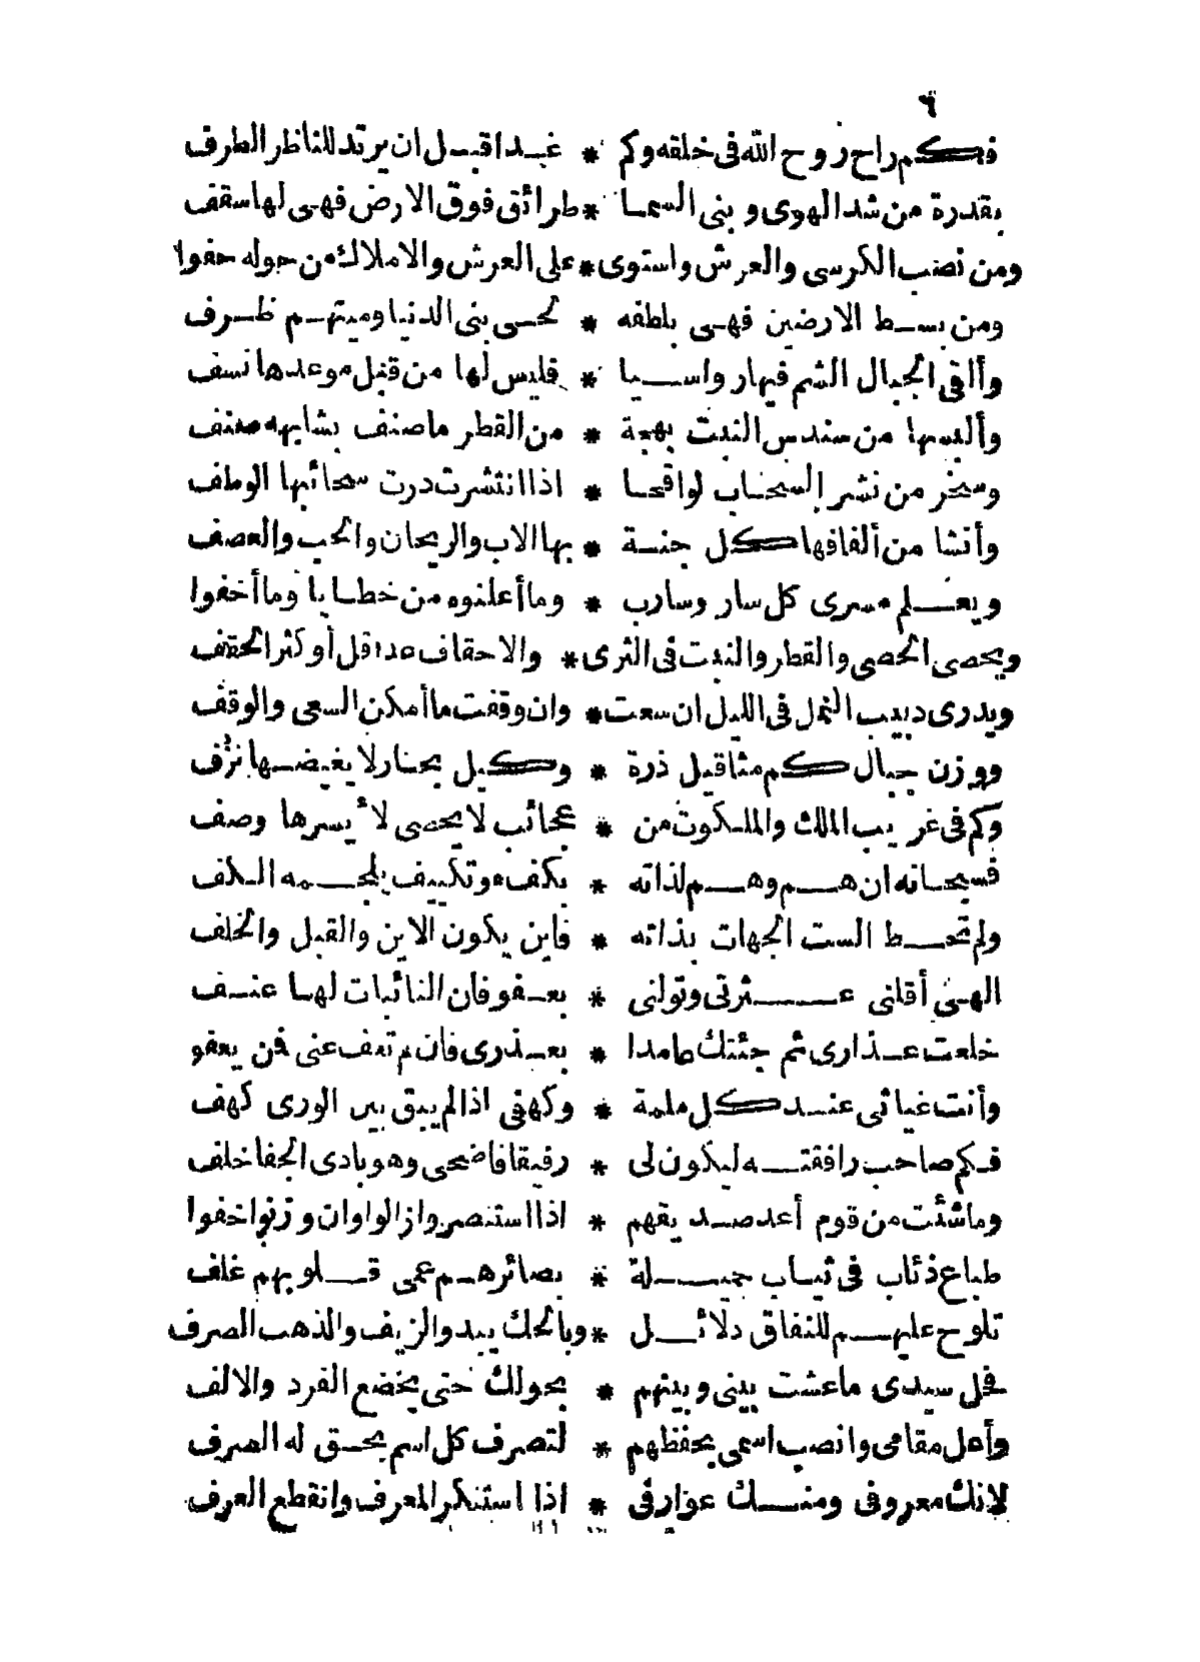 ٦
فكم راح روح الله فى خلقه وكم * غدا قبل ان يرتد للناظر الطرف
بقدرة من شد الهوى وبنى السما * طرائق فوق الارض فهى لها سقف
ومن نصب الكرسى والعرش واستوى * على العرش والاملاك من حوله حفوا
ومن بسط الارضين فهى بلطفه * لحى بنى الدنيا وميتهم ظرف
وألقى الجبال الشم فيها رواسيا * فليس لها من قبل موعدها نسف
وألبسها من سندس النبت بهجة * من القطر ماصنف يشابهه صنف
وسخر من نشر السحاب لواقحا * اذا انتشرت درت سحائبها الوطف
وأنشا من ألفافها كل جنة * بها الاب والريحان والحب والعصف
ويعلم مسرى كل سار وسارب * وما أعلنوه من خطايا وما أخفوا
ويحصى الحصى والقطر والنبت فى الثرى * والاحقاف عدا قل أو كثر الحقف
ويدرى دبيب النمل فى الليل ان سعت * وان وقفت ما أمكن السعى والوقف
ووزن جبال كم مثاقيل ذرة * وكيل بحار لا يغيضها نزف
وكم فى غريب الملك والملكوت من * عجائب لا يحصى لأيسرها وصف
فسبحانه ان هم وهم لذاته * بكفء وتكييف يلجمه الكف
ولم تحط الست الجهات بذاته * فاين يكون الاين والقبل والخلف
الهى أقلنى عثرتى وتولنى * بعفو فان النائبات لها عنف
خلعت عذارى ثم جئتك عامدا * بعذرى فان لم تعف عنى فمن يعفو
وأنت غياثى عند كل ملمة * وكهفى اذا لم يبق بين الورى كهف
فكم صاحب رافقته ليكون لى * رفيقا فاضحى وهو بادى الجفا خلف
وماشئت من قوم أعد صديقهم * اذا استنصروا زالوا وان وزنوا خفوا
طباع ذئاب فى ثياب جميلة * بصائرهم عمى قلوبهم غلف
تلوح عليهم للنفاق دلائل * وبالحك يبدو الزيف والذهب الصرف
فحل سيدى ماعشت بينى وبينهم * بحولك حتى يخضع الفرد والالف
وأعل مقامى وانصب اسمى بحفظهم * لتصرف كل اسم يحق له الصرف
لانك معروفى ومنك عوارفى * اذا استنكر المعرف وانقطع العرف